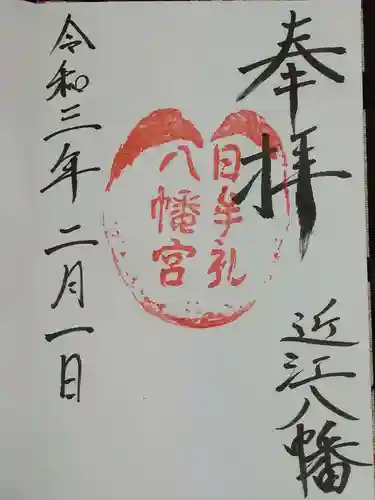 奉拝
近江八幡
日牟礼
八幡宮
令和三年二月一日